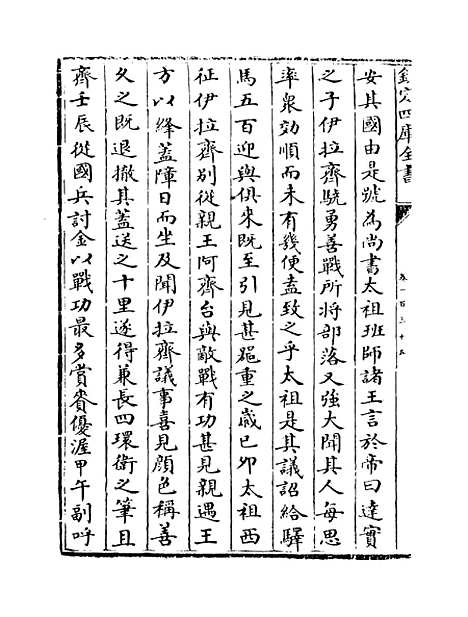 欽定四庫全書
卷一百三十五
安其國由是號為尚書太祖班師諸王言於帝曰達實
之子伊拉齊驍勇善戰所將部落又強大聞其人每思
率衆効順而未有幾便盍致之乎太祖是其議詔給驛
馬五百迎與俱來既至引見甚寵重之歲已夘太祖西
征伊拉齊別從親王阿齊台與敵戰有功甚見親遇王
方以絳蓋障日而坐及聞伊拉齊議事喜見顔色稱善
久之既退撤其蓋送之十里遂得兼長四環衛之筆且
齊壬辰從國兵討金以戰功最多賞賚優渥甲午副呼